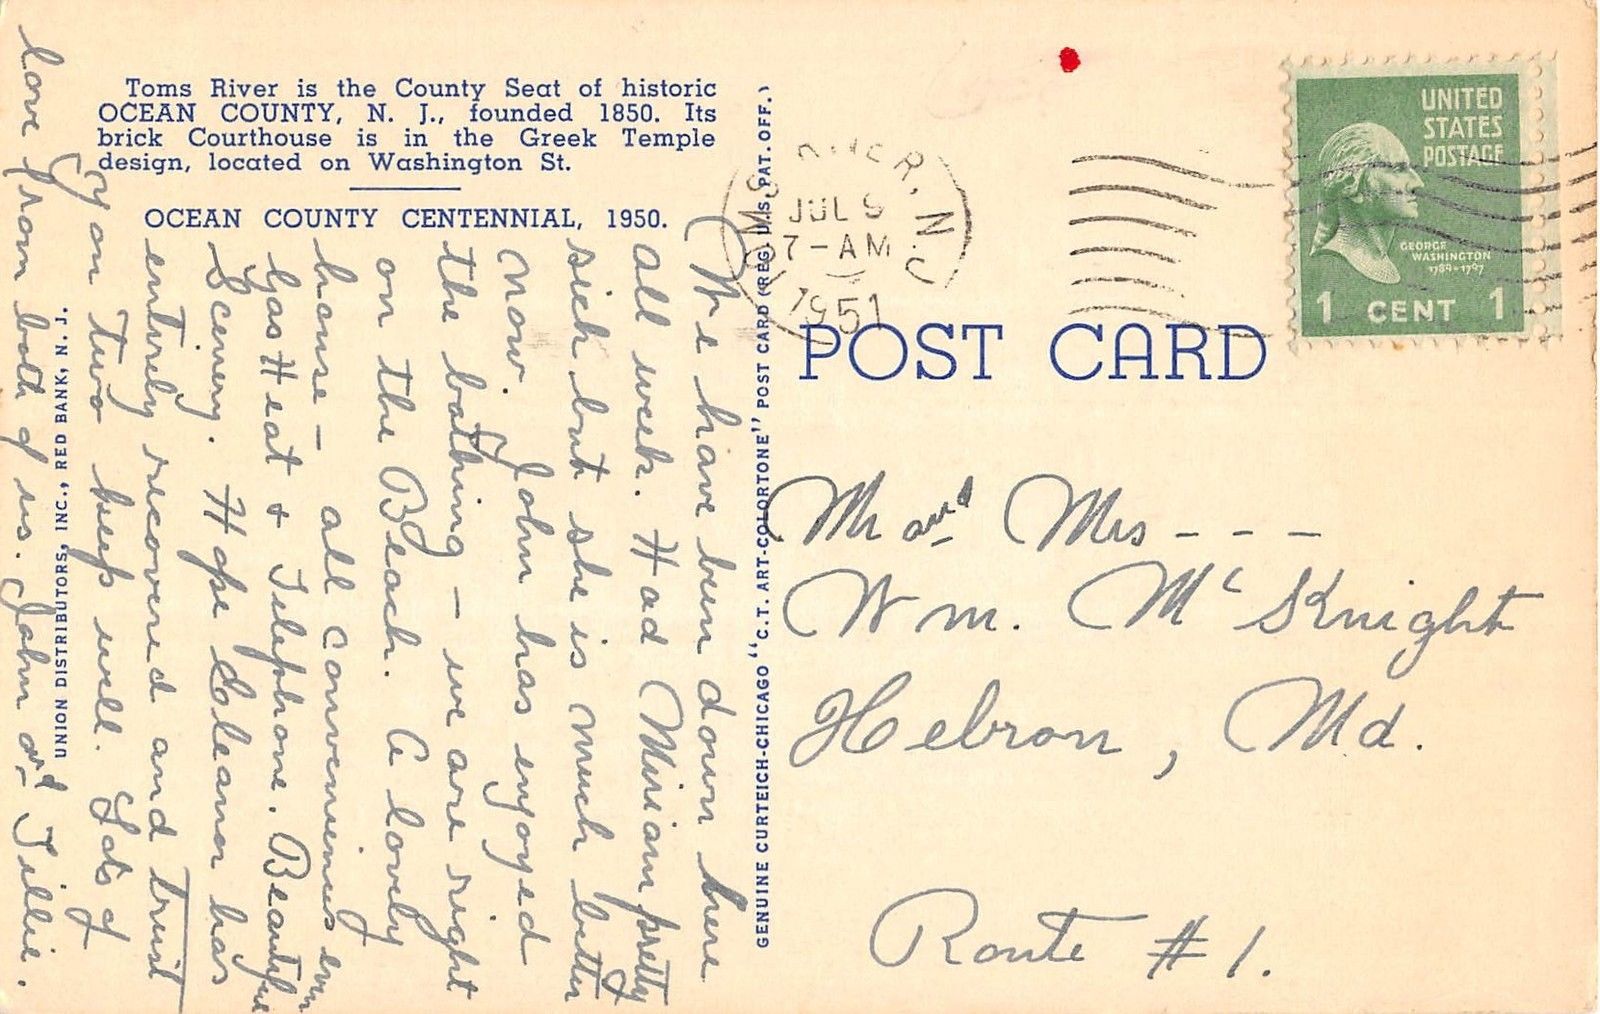 Toms River is the County Seat of historic
OCEAN COUNTY, N. J., founded 1850. Its
brick Courthouse is in the Greek Temple
design, located on Washington St.
OCEAN COUNTY CENTENNIAL, 1950.
We have been down here
all week. Had Miriam pretty
sick but she is much better
now. John has enjoyed
the bathing – we are right
on the Beach. A lovely
house – all conveniences even
Gas Heat + Telephone. Beautiful
Scenery. Hope Eleanor has
entirely recovered and trust
you two keep well. Lots of
love from both of us. John and Tillie.
UNION DISTRIBUTORS, INC., RED BANK, N. J.
GENUINE CURTEICH-CHICAGO "C.T. ART-COLORTONE" POST CARD (REG. U.S. PAT. OFF.)
TOMS RIVER, N.J.
JUL 9
7-AM
1951
UNITED
STATES
POSTAGE
GEORGE
WASHINGTON
1789-1797
1 CENT 1
POST CARD
Mr and Mrs - - -
Wm. McKnight
Hebron, Md.
Route #1.